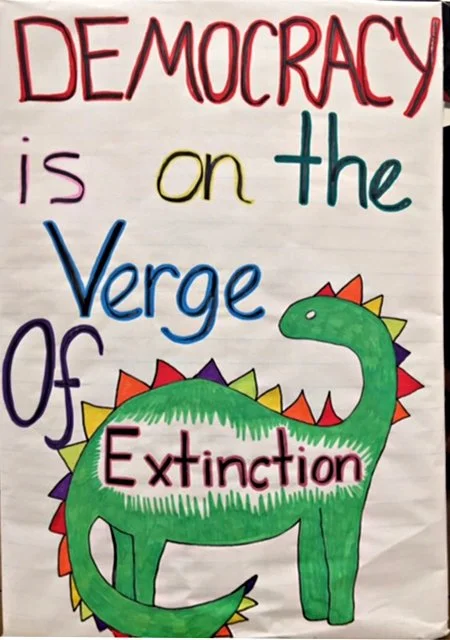 DEMOCRACY
is on the
Verge
Of
Extinction